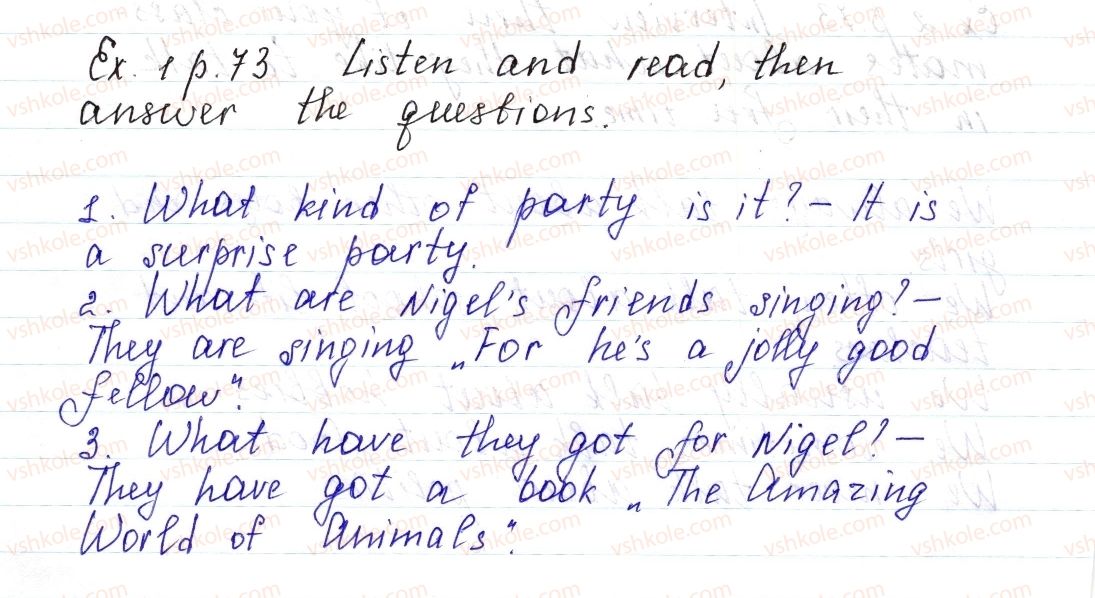 Ex. 1 p. 73 Listen and read, then
answer the questions.
1. What kind of party is it? – It is
a surprise party.
2. What are Nigel's friends singing? –
They are singing „For he's a jolly good
fellow".
3. What have they got for Nigel? –
They have got a book „The Amazing
World of Animals".